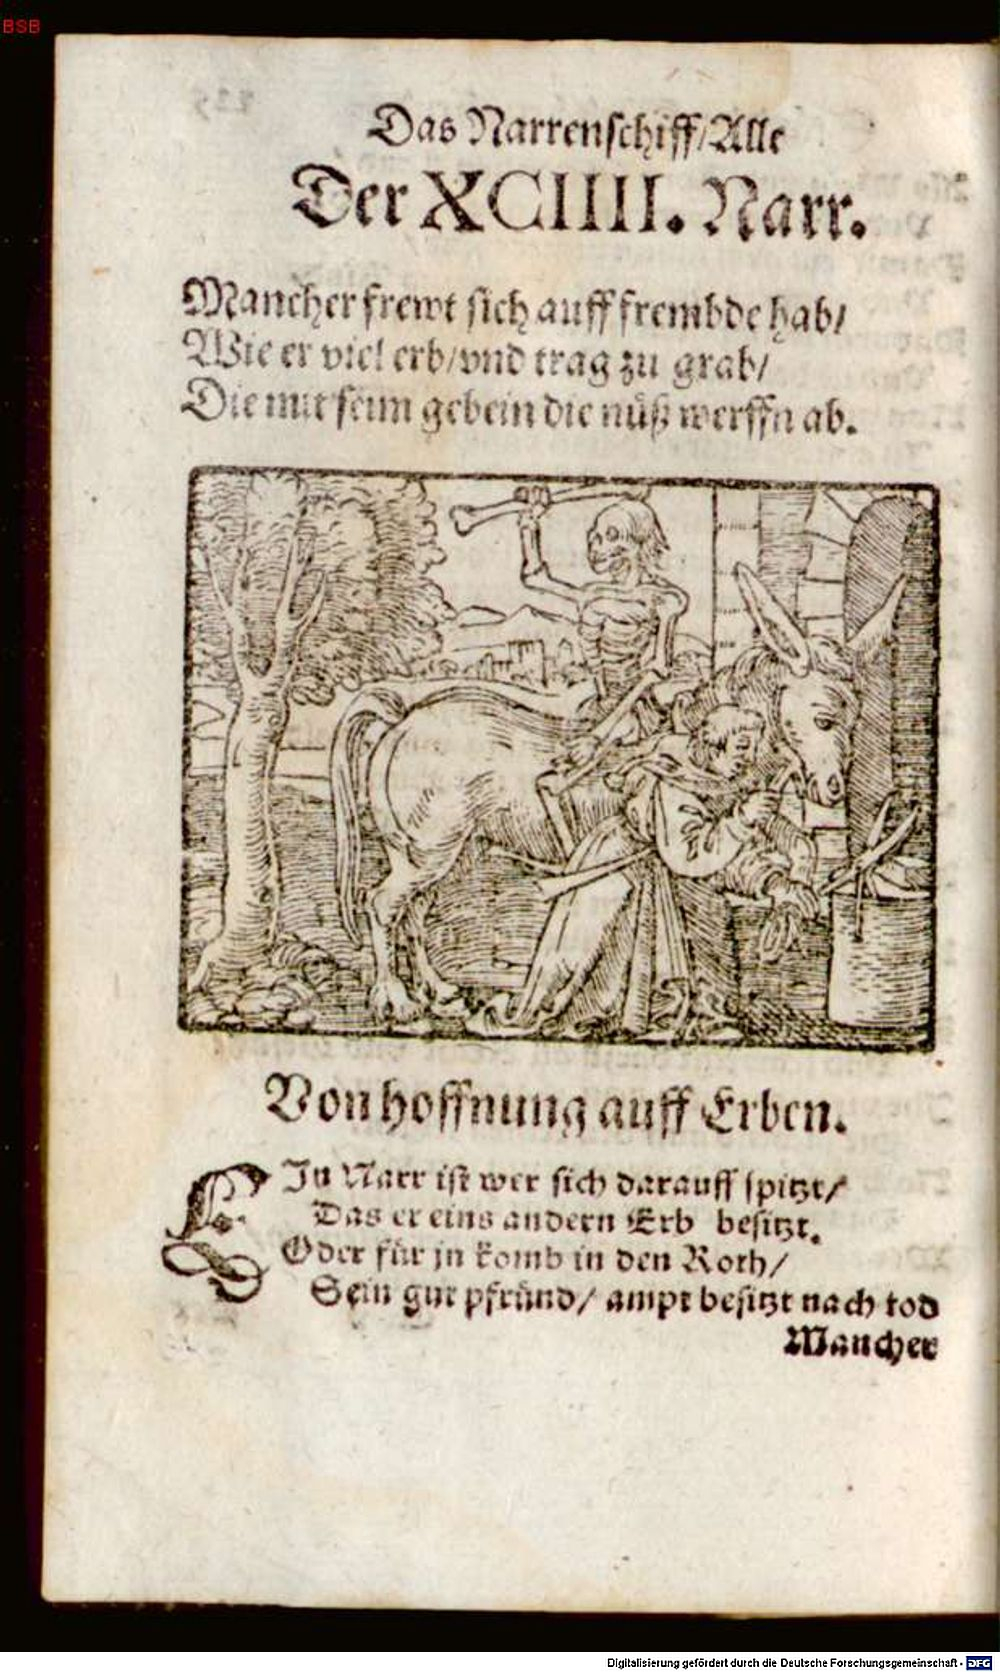 BSB
Das Narrenschiff/Alle
Der XCIIII. Narr.
Mancher frewt sich auff frembde hab/
Wie er viel erb/vnd trag zu grab/
Die mit seim gebein die nüß werffn ab.
Von hoffnung auff Erben.
EIn Narr ist wer sich darauff spitzt/
Das er eins andern Erb besitzt.
Oder für jn komb in den Roth/
Sein gut pfründ/ ampt besitzt nach tod
Mancher
Digitalisierung gefördert durch die Deutsche Forschungsgemeinschaft - DFG